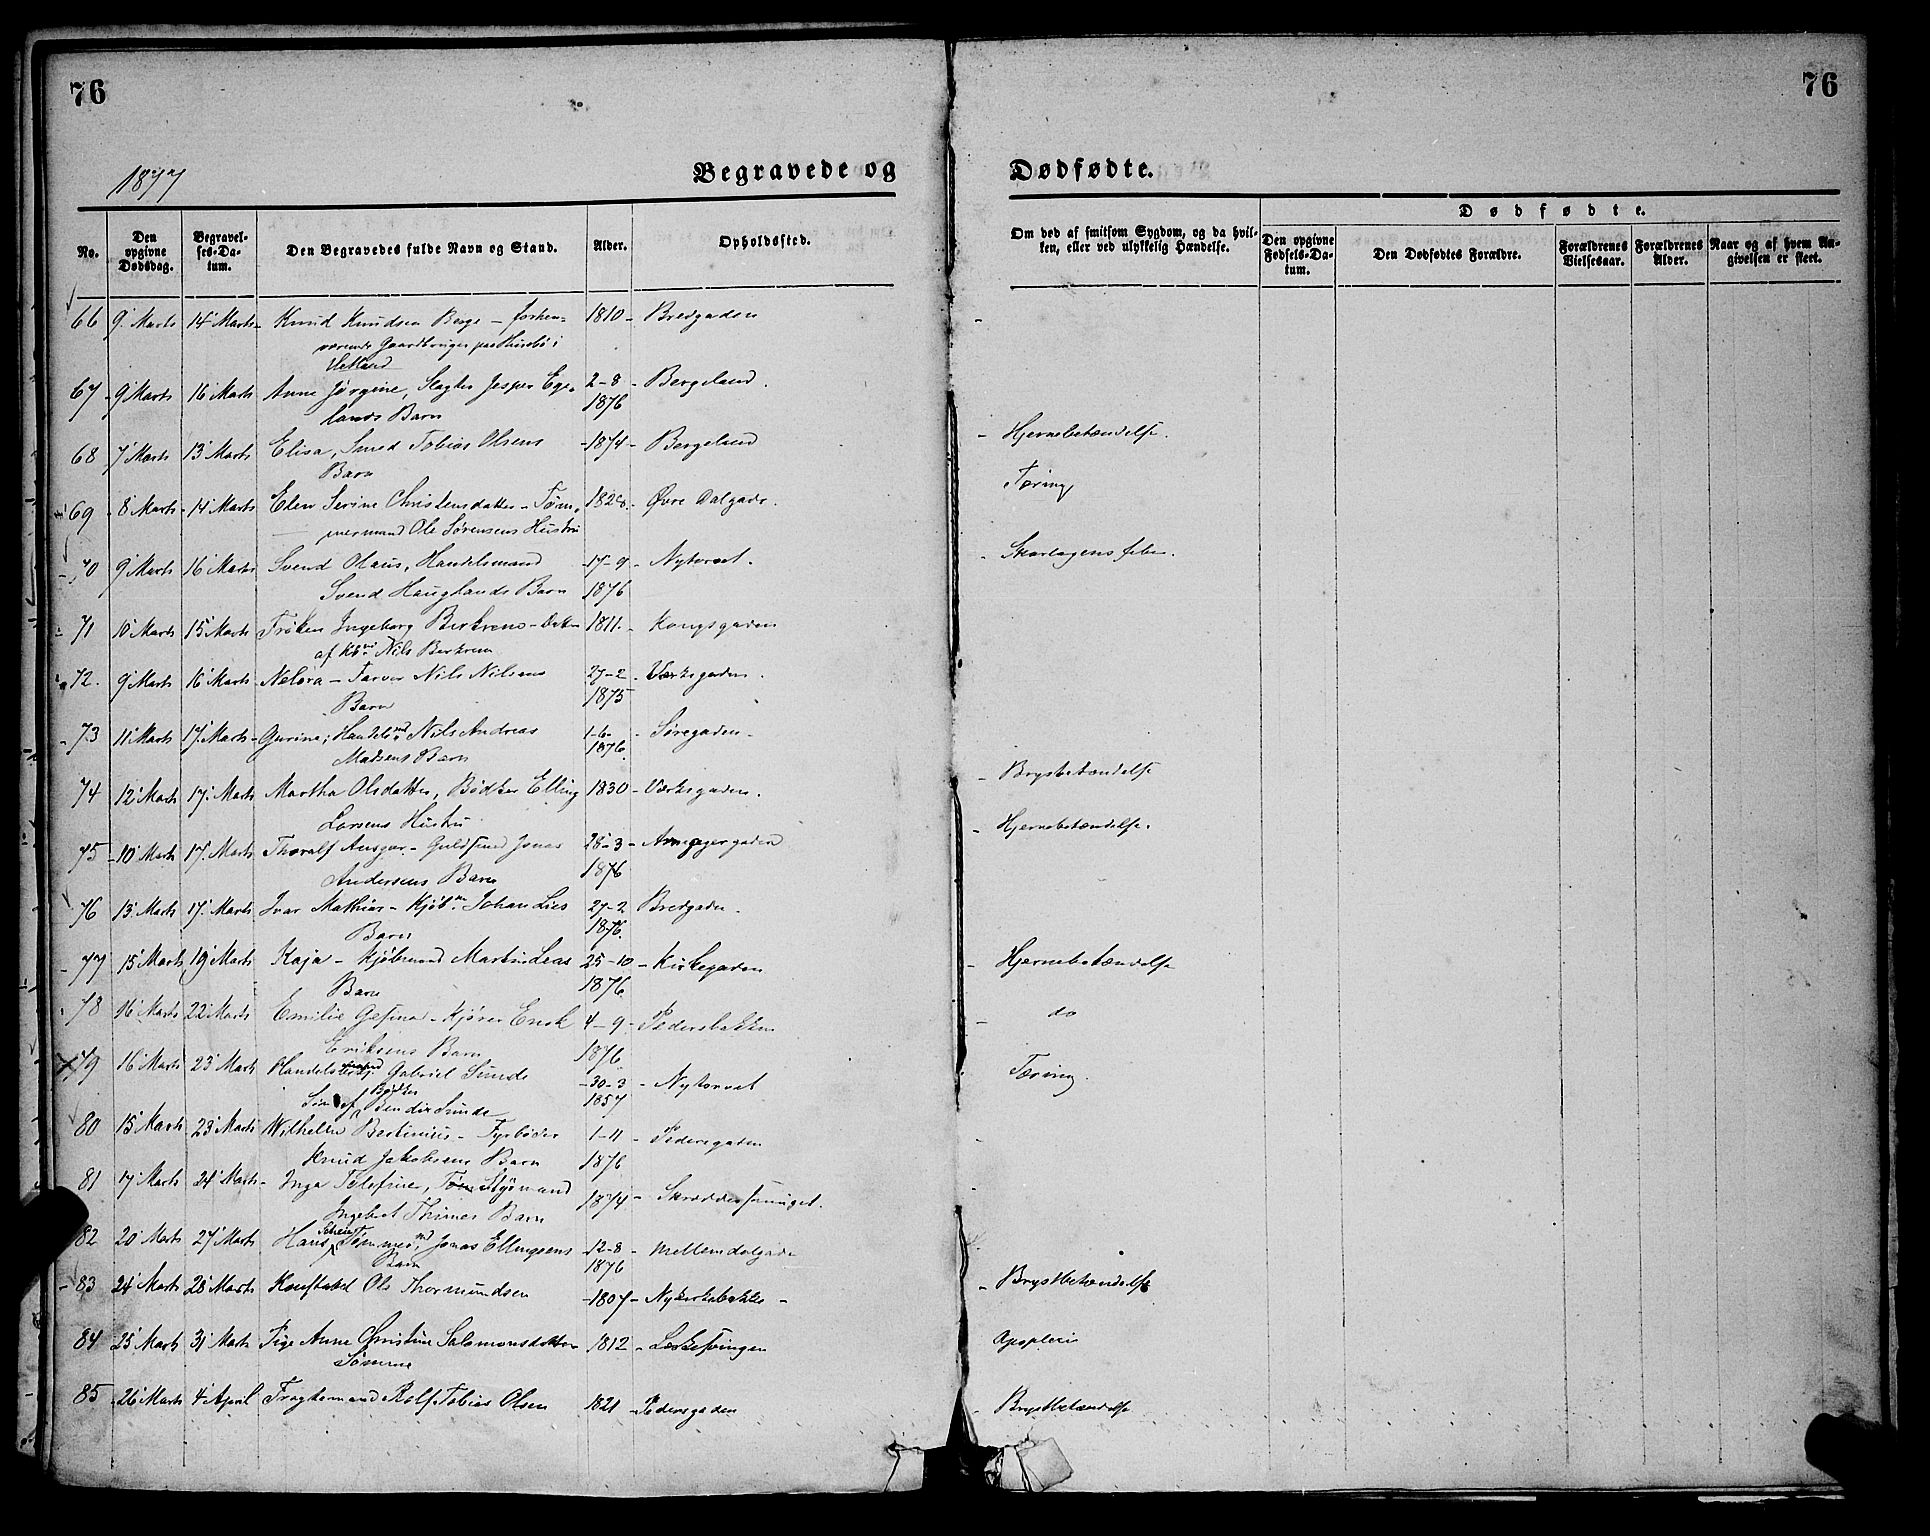 76
76
1877
Begravede og
Dødfødte.
No.
Den opgivne Dødsdag.
Begravelses-Datum.
Den Begravedes fulde Navn og Stand.
Alder.
Opholdssted.
Om død af smitsom Sygdom, og da hvilken, eller ved ulykkelig Hændelse.
Dødfødte.
Den opgivne Fødsels-Datum.
Den Dødfødtes Forældre.
Forældrenes Vielsesaar.
Forældrenes Alder.
Naar og af hvem Angivelsen er skeet.
66 9 Marts 14 Marts Knud Knudsen Berge - forhen- 1810 - Bredgaden
værende Gaardbruger paa Husebø i
Hetland
67 9 Marts 16 Marts Anne Jørgine, Slagter Jesper Ege- 2-8 - Bergeland.
lands Barn 1876
- Hjernebetændelse.
68 7 Marts 13 Marts Elisa, Smed Tobias Olsens - 1874 - Bergeland
Barn
Tæring
69 8 Marts 14 Marts Elen Serine Christensdatter - Tøm- 1828. Øvre Dalgade.
mermand Ole Sørensens Hustru
70 9 Marts 16 Marts Svend Olaus, Handelsmand 17-9 - Nytorvet.
- Skarlagensfeber.
Svend Hauglands Barn 1876
71 10 Marts 15 Marts Frøken Ingeborg Berkrem - Datter 1811. - Kongsgaden
af Kbmd Nils Berkrem
72. 9 Marts 16 Marts Nelora - Farver Nils Nilsens 27-2 - Værksgaden.
Barn 1875
73 11 Marts 17 Marts - Gurine, Handelsmd Nils Andreas 1-6- - Søregaden -
Madsens Barn 1876.
- Brystbetændelse
74 12 Marts 17 Marts Martha Olsdatter, Bødker Elling 1830 - Værksgaden.
Larsens Hustru
- Hjernebetændelse.
75 - 10 Marts 17 Marts Thoralf Ansgar - Guldsmed Jonas 28-3 - Amagergaden
Andersens Barn 1876
76 13 Marts 17 Marts Ivar Mathias - Kjøbm. Johan Lies 27-2 Bredgaden.
Barn 1876.
77 15 Marts 19 Marts Kaja - Kjøbmand Martin Leas 25-10 - Kirkegaden
- Hjernebetændelse
Barn 1876.
78 16 Marts 22 Marts Emilie Gesina - Kjører Erik 4-9 - Pedersbakken
- do
Eriksens Barn 1876
79 16 Marts 23 Marts Handels Gabriel Sunde - 30-3 - Nytorvet
Tæring.
Søn af Bødker Bendix Sunde 1857
80 15 Marts 23 Marts Wilhelm Bertinius - Fyrbøder 1-11 - Pedersgaden
Knud Jakobsens Barn 1876
81 17 Marts 24 Marts - Inga Tolefine, Styrmand 1874 - Skræddersmuget.
Ingebret Thimes Barn
82 20 Marts 27 Marts Hans Tømmermd Jonas Ellingsens 12-8 - Mellemdalgaden
Barn 1876
- Brystbetændelse
83 24 Marts 28 Marts Ole Thormundsen - 1807 - Nykirkebakke -
84 25 Marts 31 Marts Pige Anne Christine Salomonsdatter 1812 - Løkkesvingen
Apoplexi
Sømme
85 26 Marts 4 April Fragtemand Rolf Tobias Olsen 1821 - Pedersgaden
- Brystbetændelse